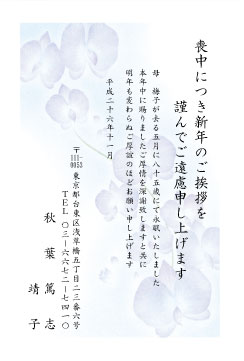 喪中につき新年のご挨拶を
謹んでご遠慮申し上げます
母　梅子が去る五月に八十五歳にて永眠いたしました
本年中に賜りましたご厚情を深謝致しますと共に
明年も変わらぬご厚誼のほどお願い申し上げます
平成二十六年十一月
〒111-0053
東京都台東区浅草橋五丁目二三番六号
ＴＥＬ　〇三-六六七二-七四一〇
秋葉　篤志
靖子